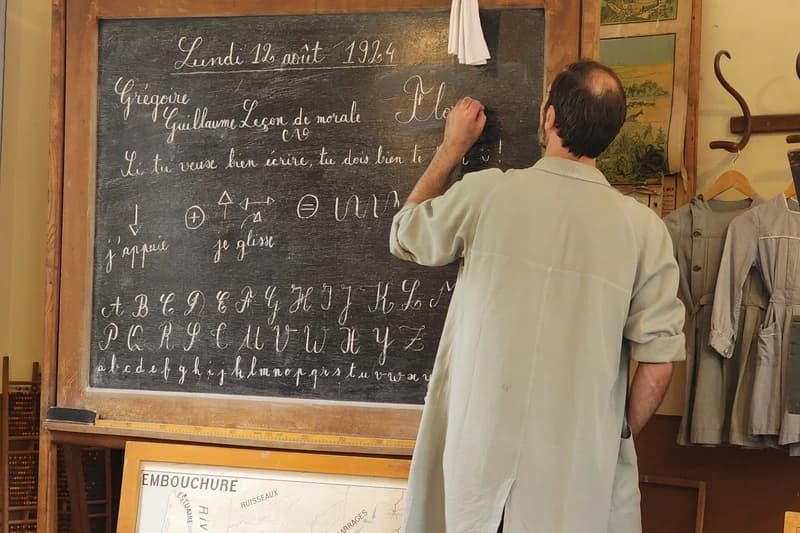 Lundi 12 août 1924
Grégoire
Guillaume
Leçon de morale
Flo
Si tu veux bien écrire, tu dois bien te !
j'appuie
je glisse
A B C D E F G H I J K L M
P Q R S T U V W X Y Z
a b c d e f g h i j k l m n o p q r s t u v w x
EMBOUCHURE
RUISSEAUX
ESTUAIRE
RIV
BARRAGES